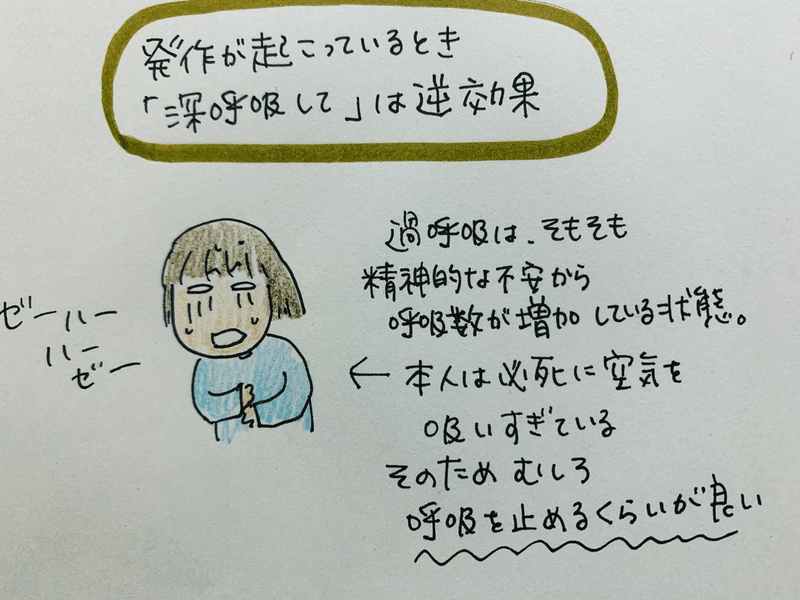 発作が起こっているとき
「深呼吸して」は逆効果
過呼吸は、そもそも
精神的な不安から
呼吸数が増加している状態。
← 本人は必死に空気を
吸いすぎている
そのため むしろ
呼吸を止めるくらいが良い
ゼーハー
ハー
ゼー